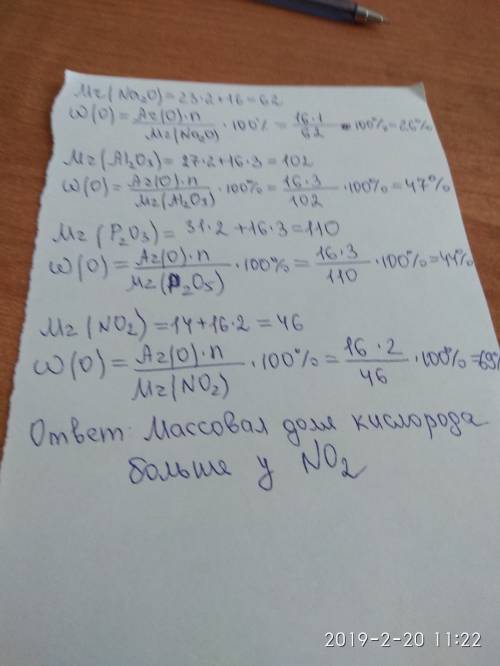 Mr(Na₂O)=23·2+16=62
W(O)=Ar(O)·n/Mr(Na₂O)·100%=16·1/62·100%=26%
Mr(Al₂O₃)=27·2+16·3=102
W(O)=Ar(O)·n/Mr(Al₂O₃)·100%=16·3/102·100%=47%
Mr(P₂O₃)=31·2+16·3=110
W(O)=Ar(O)·n/Mr(P₂O₃)·100%=16·3/110·100%=44%
Mr(NO₂)=14+16·2=46
W(O)=Ar(O)·n/Mr(NO₂)·100%=16·2/46·100%=69%
Ответ: Массовая доля кислорода
больше у NO₂
2019-2-20 11:22